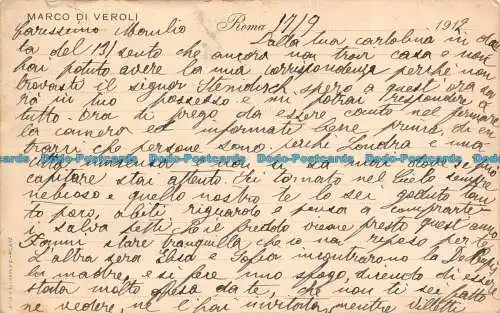 MARCO DI VEROLI
Roma 17/9 1912
Carissimo Manlio Dalla tua cartolina in da
ta del 13/ sento che ancora non trovi casa e non
hai potuto avere la mia corrispondenza perché non
trovasti il signor spero a quest'ora sa
rà in tuo possesso e mi potrai rispondere a
tutto. Ora ti prego, da essere cauto nel fermare
la camera ed informati bene prima, di en
trarci che persone sono, perché Londra è una
città immensa
capitare stai attento. Sei tornato nel cielo sempre
nebbioso e quello nostro te lo sei goduto tan
to poco, abiti riguardo e pensa a comprarte
i salva petti che il freddo viene presto quest'anno
Fammi stare tranquilla che io mai riposo per te
L'altra sera Elsa e incontrarono la
la madre, e si fece uno sfogo, dicendo di essere
stata molto offesa da te, che non ti sei fatto
ne vedere, ne l'hai invitata, mentre
Postcards Postcards Postcards Postcards Postcards